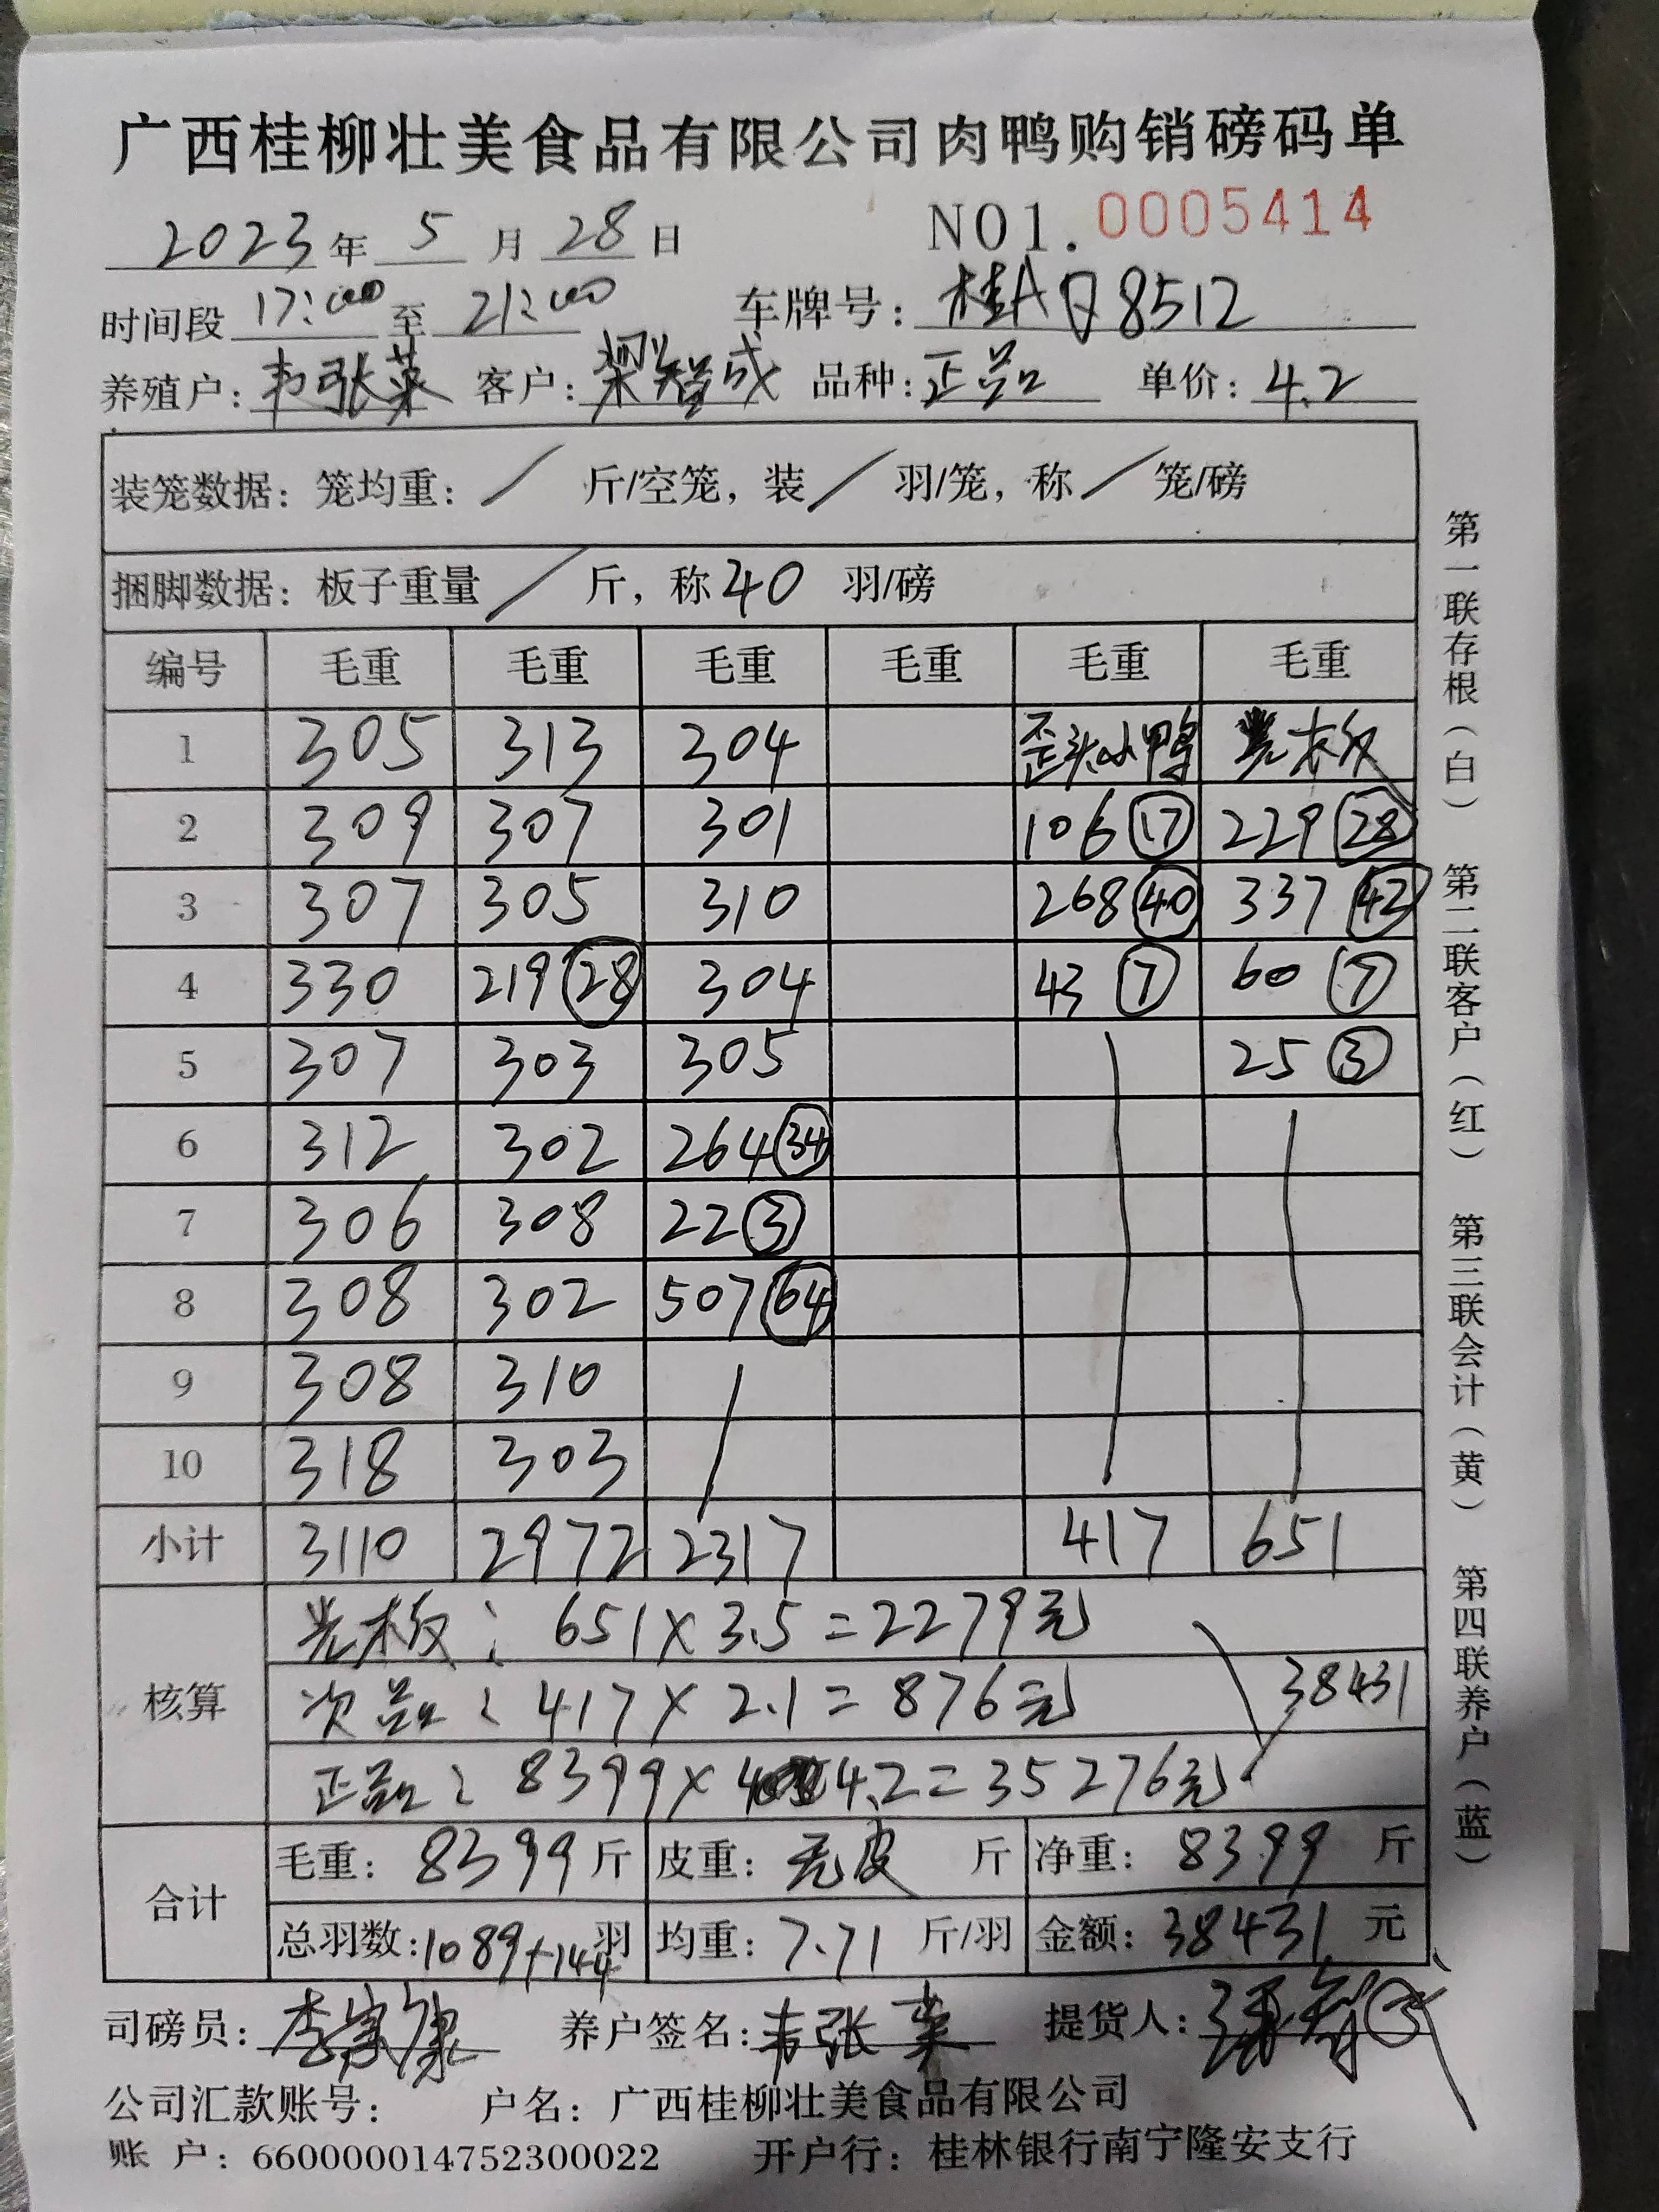 广西桂柳壮美食品有限公司肉鸭购销磅码单
2023年 5 月 28 日 NO1. 0005414
时间段 17:00 至 21:00 车牌号: 桂A Q8512
养殖户: 韦张英 客户: 梁智成 品种: 正品 单价: 4.2
装笼数据: 笼均重: / 斤/空笼, 装 / 羽/笼, 称 / 笼/磅
捆脚数据: 板子重量 / 斤, 称 40 羽/磅
编号 毛重 毛重 毛重 毛重 毛重 毛重
1 305 313 304 歪头小鸭 光板
2 309 307 301 106 ⑰ 229 ㉘
3 307 305 310 268 ㊵ 337 ㊷
4 330 219 ㉘ 304 43 ⑦ 60 ⑦
5 307 303 305 25 ③
6 312 302 264 ㉞
7 306 308 22 ③
8 308 302 507 (64)
9 308 310 /
10 318 303
小计 3110 2972 2317 417 651
核算
光板: 651×3.5=2279元
次品: 417×2.1=876元 38431
正品: 8399×4.2=35276元
合计
毛重: 8399 斤 皮重: 无皮 斤 净重: 8399 斤
总羽数: 1089+144 羽 均重: 7.71 斤/羽 金额: 38431 元
司磅员: 李家康 养户签名: 韦张英 提货人:
公司汇款账号: 户名: 广西桂柳壮美食品有限公司
账 户: 660000014752300022 开户行: 桂林银行南宁隆安支行
第一联存根(白) 第二联客户(红) 第三联会计(黄) 第四联养户(蓝)